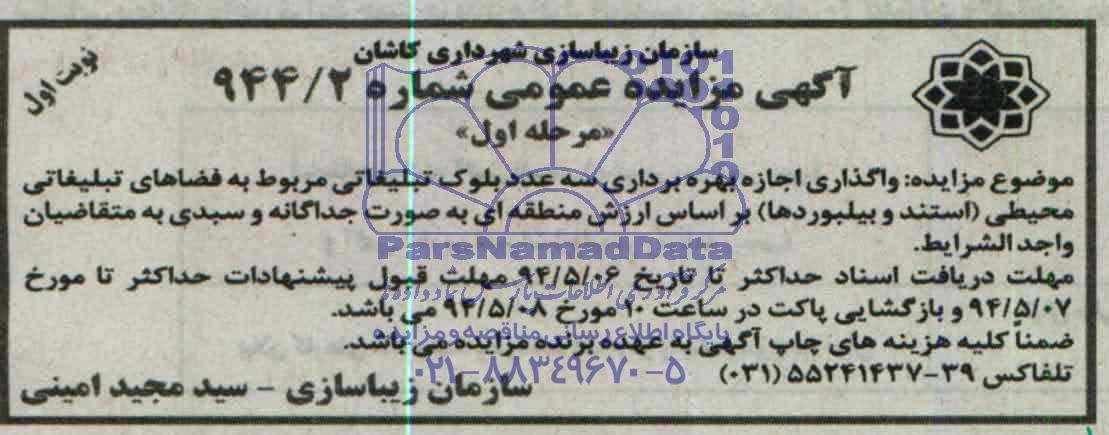 سازمان زیباسازی شهرداری کاشان
نوبت اول
آگهی مزایده عمومی شماره ۹۴۴/۲
«مرحله اول»
موضوع مزایده: واگذاری اجازه بهره برداری سه عدد بلوک تبلیغاتی مربوط به فضاهای تبلیغاتی
محیطی (استند و بیلبوردها) بر اساس ارزش منطقه ای به صورت جداگانه و سبدی به متقاضیان
واجد الشرایط.
مهلت دریافت اسناد حداکثر تا تاریخ ۹۴/۵/۰۶ مهلت قبول پیشنهادات حداکثر تا مورخ
۹۴/۵/۰۷ و بازگشایی پاکت در ساعت ۱۰ مورخ ۹۴/۵/۰۸ می باشد.
ضمناً کلیه هزینه های چاپ آگهی به عهده برنده مزایده می باشد.
تلفاکس ۳۹-۵۵۲۴۱۴۳۷ (۰۳۱)
سازمان زیباسازی - سید مجید امینی
ParsNamadData
مرکز فرآوری اطلاعات پارس نماد داده ها
پایگاه اطلاع رسانی مناقصه و مزایده
۰۲۱-۸۸۳۴۹۶۷۰-۵